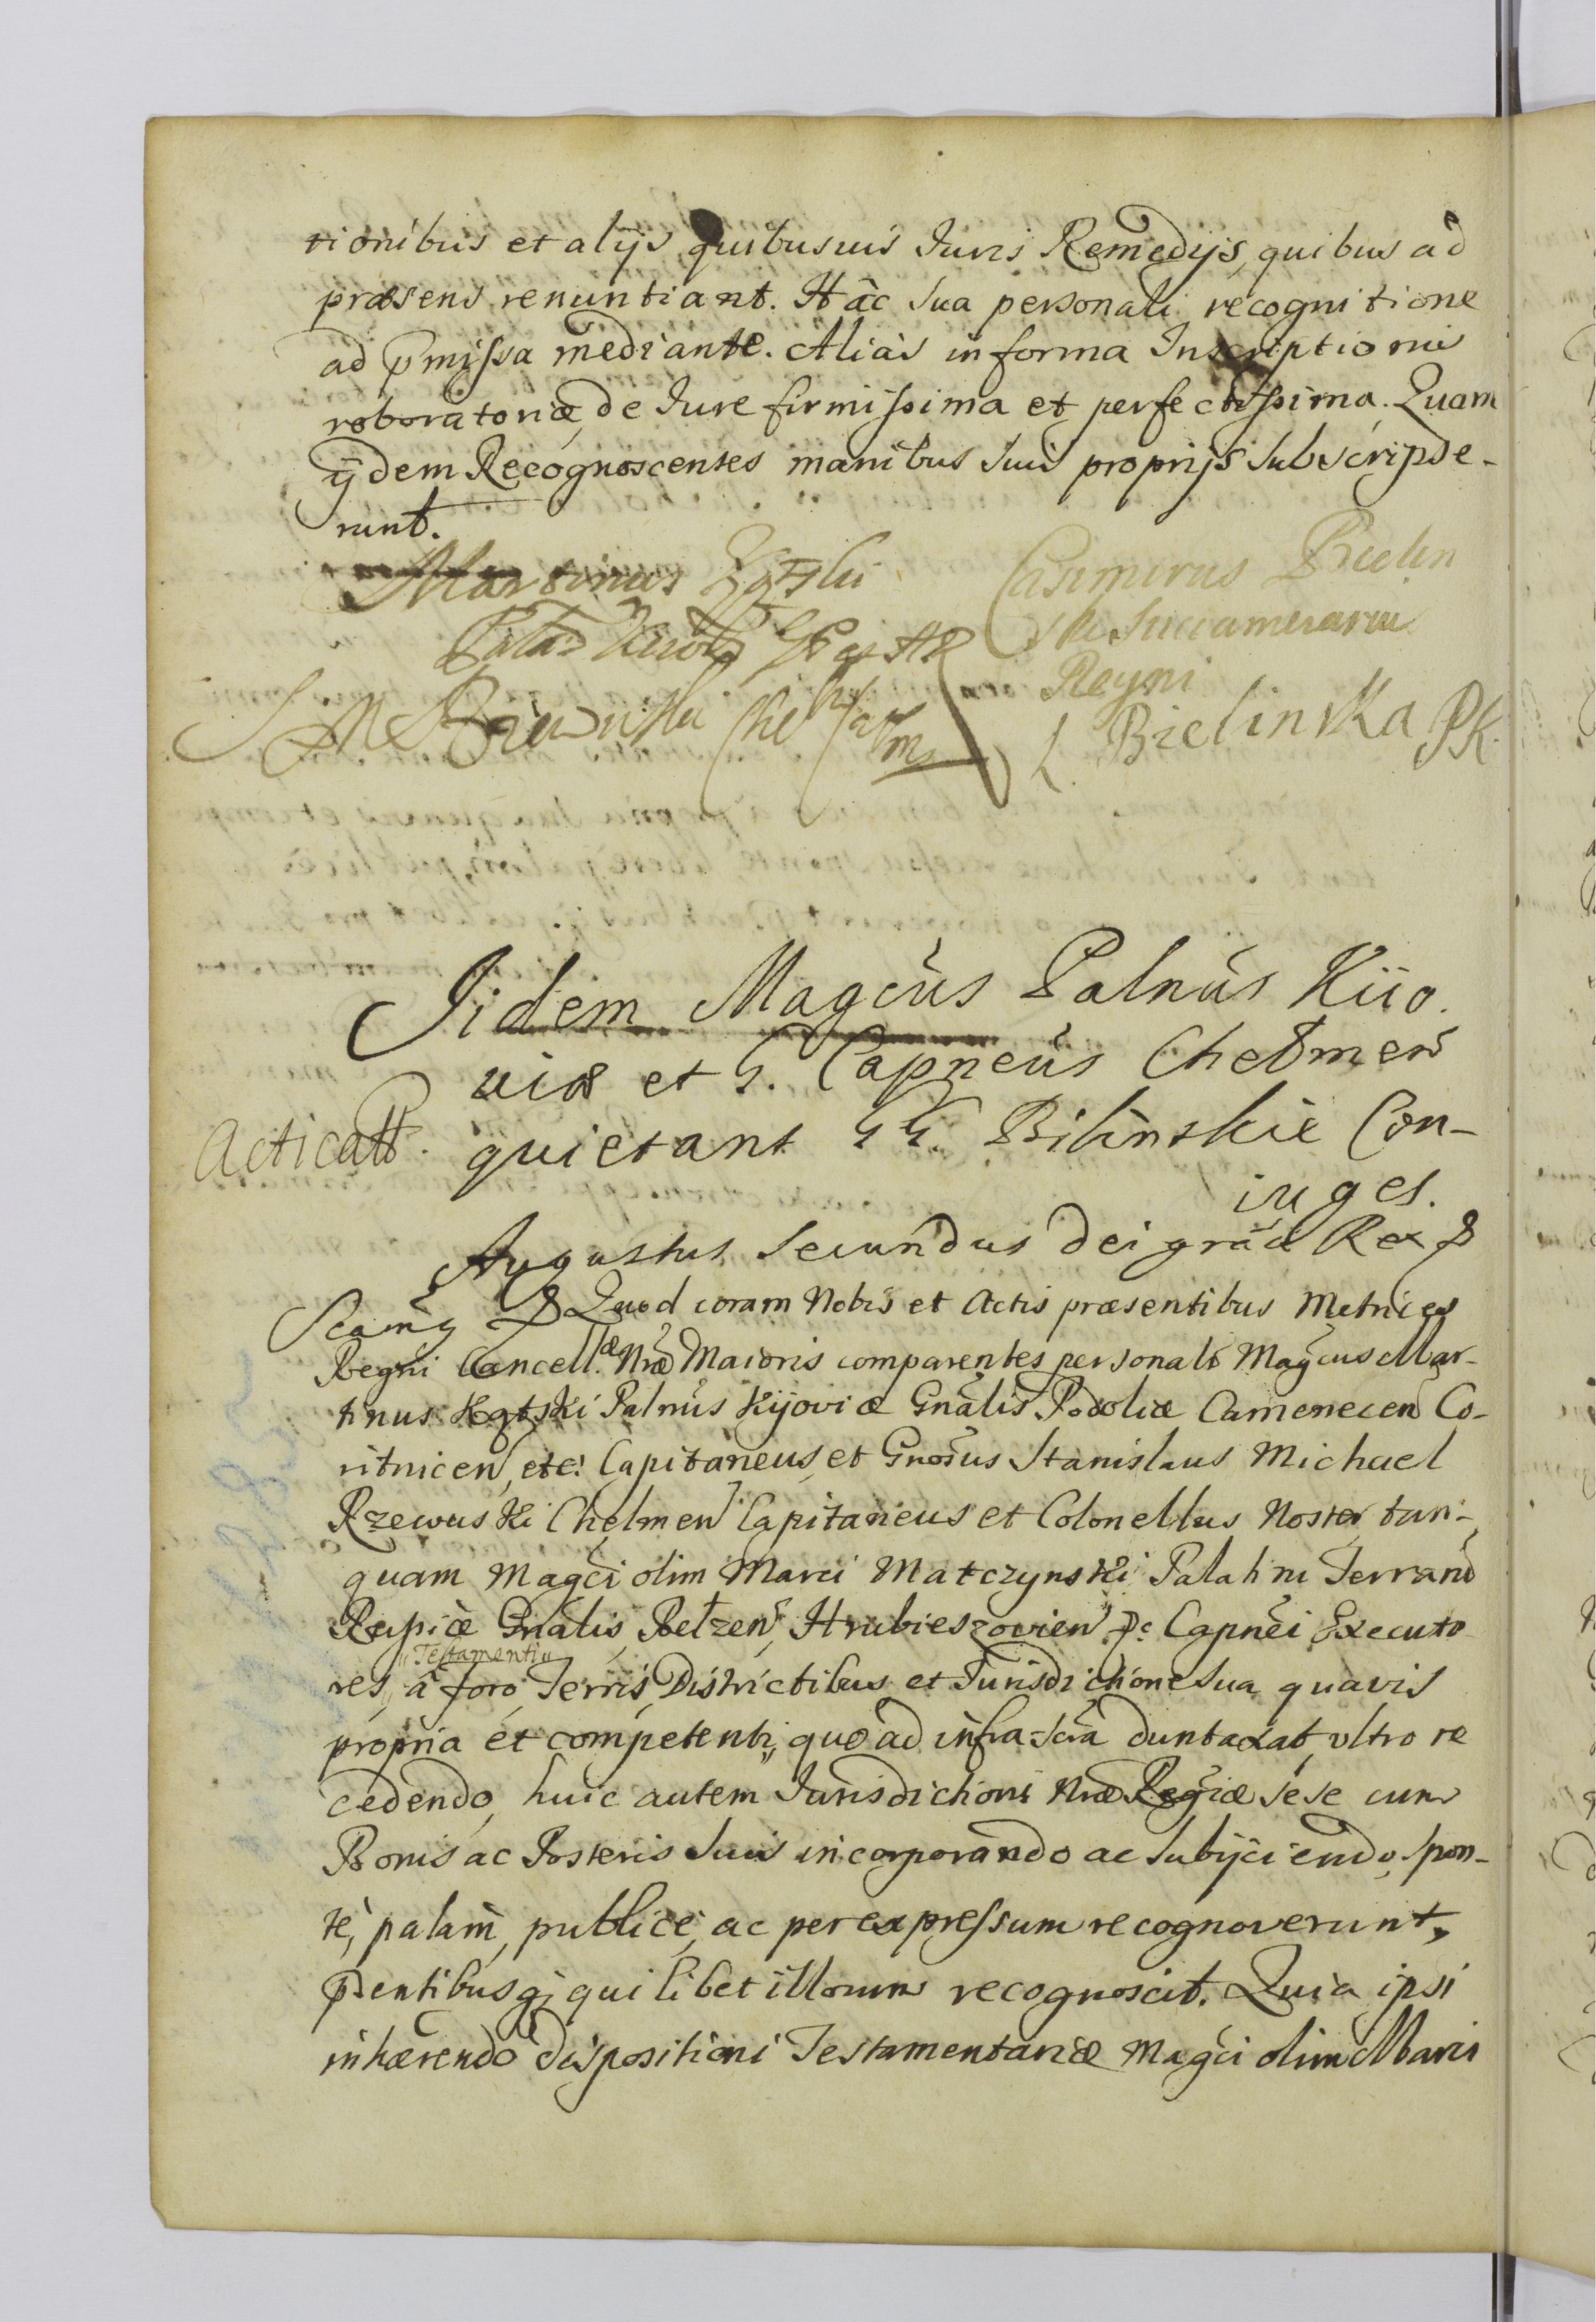 tionibus et alijs quibusuis Iuris Remedijs, quibus ad
præsens renuntiant. Hâc sua personali recognitione
ad pmissa mediante. Aliàs in forma Inscriptionis
roboratoriæ de Iure firmissima et perfectissima. Quam
ijdem Recognoscentes manibus suis proprijs subscripse-
runt.
Martinus Kątski Casimirus Bielin
ski Succamerarius
Regni
S M Rzewuski L Bielinska PK
Iidem Magcus Palnus Kiio.
uiæ et G. Capneus Chełmen
Acticatt. quietant GG. Bilinskie Con-
iuges.
Augustus Secundus Dei grâ Rex &
Quod coram Nobis et Actis præsentibus Metrices
Regni Cancellæ Nræ Maioris comparentes personalr Magcus Mar-
tinus Kątski Palnus Kijoviæ Gnalis Podoliæ Camenecen Co-
ritnicen, etc: Capitaneus, et Gnosus Stanislaus Michael
Rzewuski Chelmen Capitaneus et Colonellus Noster tan-
quam Magci olim Marci Matczynski Palatini Terrarũ
Russiæ Gnalis, Bełzen, Hrubieszovien &c Capnei Executo
"Testamenti"
res, â foro Terris, Districtibus et Iurisdictione sua quavis
propria et competenti, quo ad infra scra duntaxat, ultro re
cedendo, huic autem Iurisdictioni Nræ Regiæ sese cum
Bonis ac Posteris suis incorporando ac subijciendo, spon-
tè, palam, publicè, ac per expressum recognoverunt,
pntibusq; quilibet illorum recognoscit. Quia ipsi
inhærendo dispositioni Testamentariæ Magci olim Marci